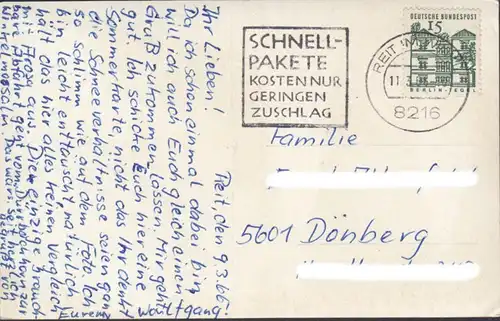 Reit, den 9.3.66.
Ihr Lieben!
Da ich schon einmal dabei bin
will ich auch Euch gleich einen
Gruß zukommen lassen. Mir geht's
gut. Ich schicke Euch hier eine
Sommerkarte, nicht das Ihr denkt
die Schneeverhältnisse seien ganz
so schlimm wie auf dem Foto. Ich
bin leicht enttäuscht natürlich
hält das hier alles keinen Vergleich
mit Arosa aus. Die einzige brauch-
bare Abfahrt geht vom Dürrnbachhorn zur
Winkelmoosalm. Das wär's, seid herzlich
gegrüßt von
Eurem
Wolfgang!
SCHNELL-
PAKETE
KOSTEN NUR
GERINGEN
ZUSCHLAG
REIT IM
11.
8216
DEUTSCHE BUNDESPOST
15
BERLIN-TEGEL
Familie
5601 Dönberg